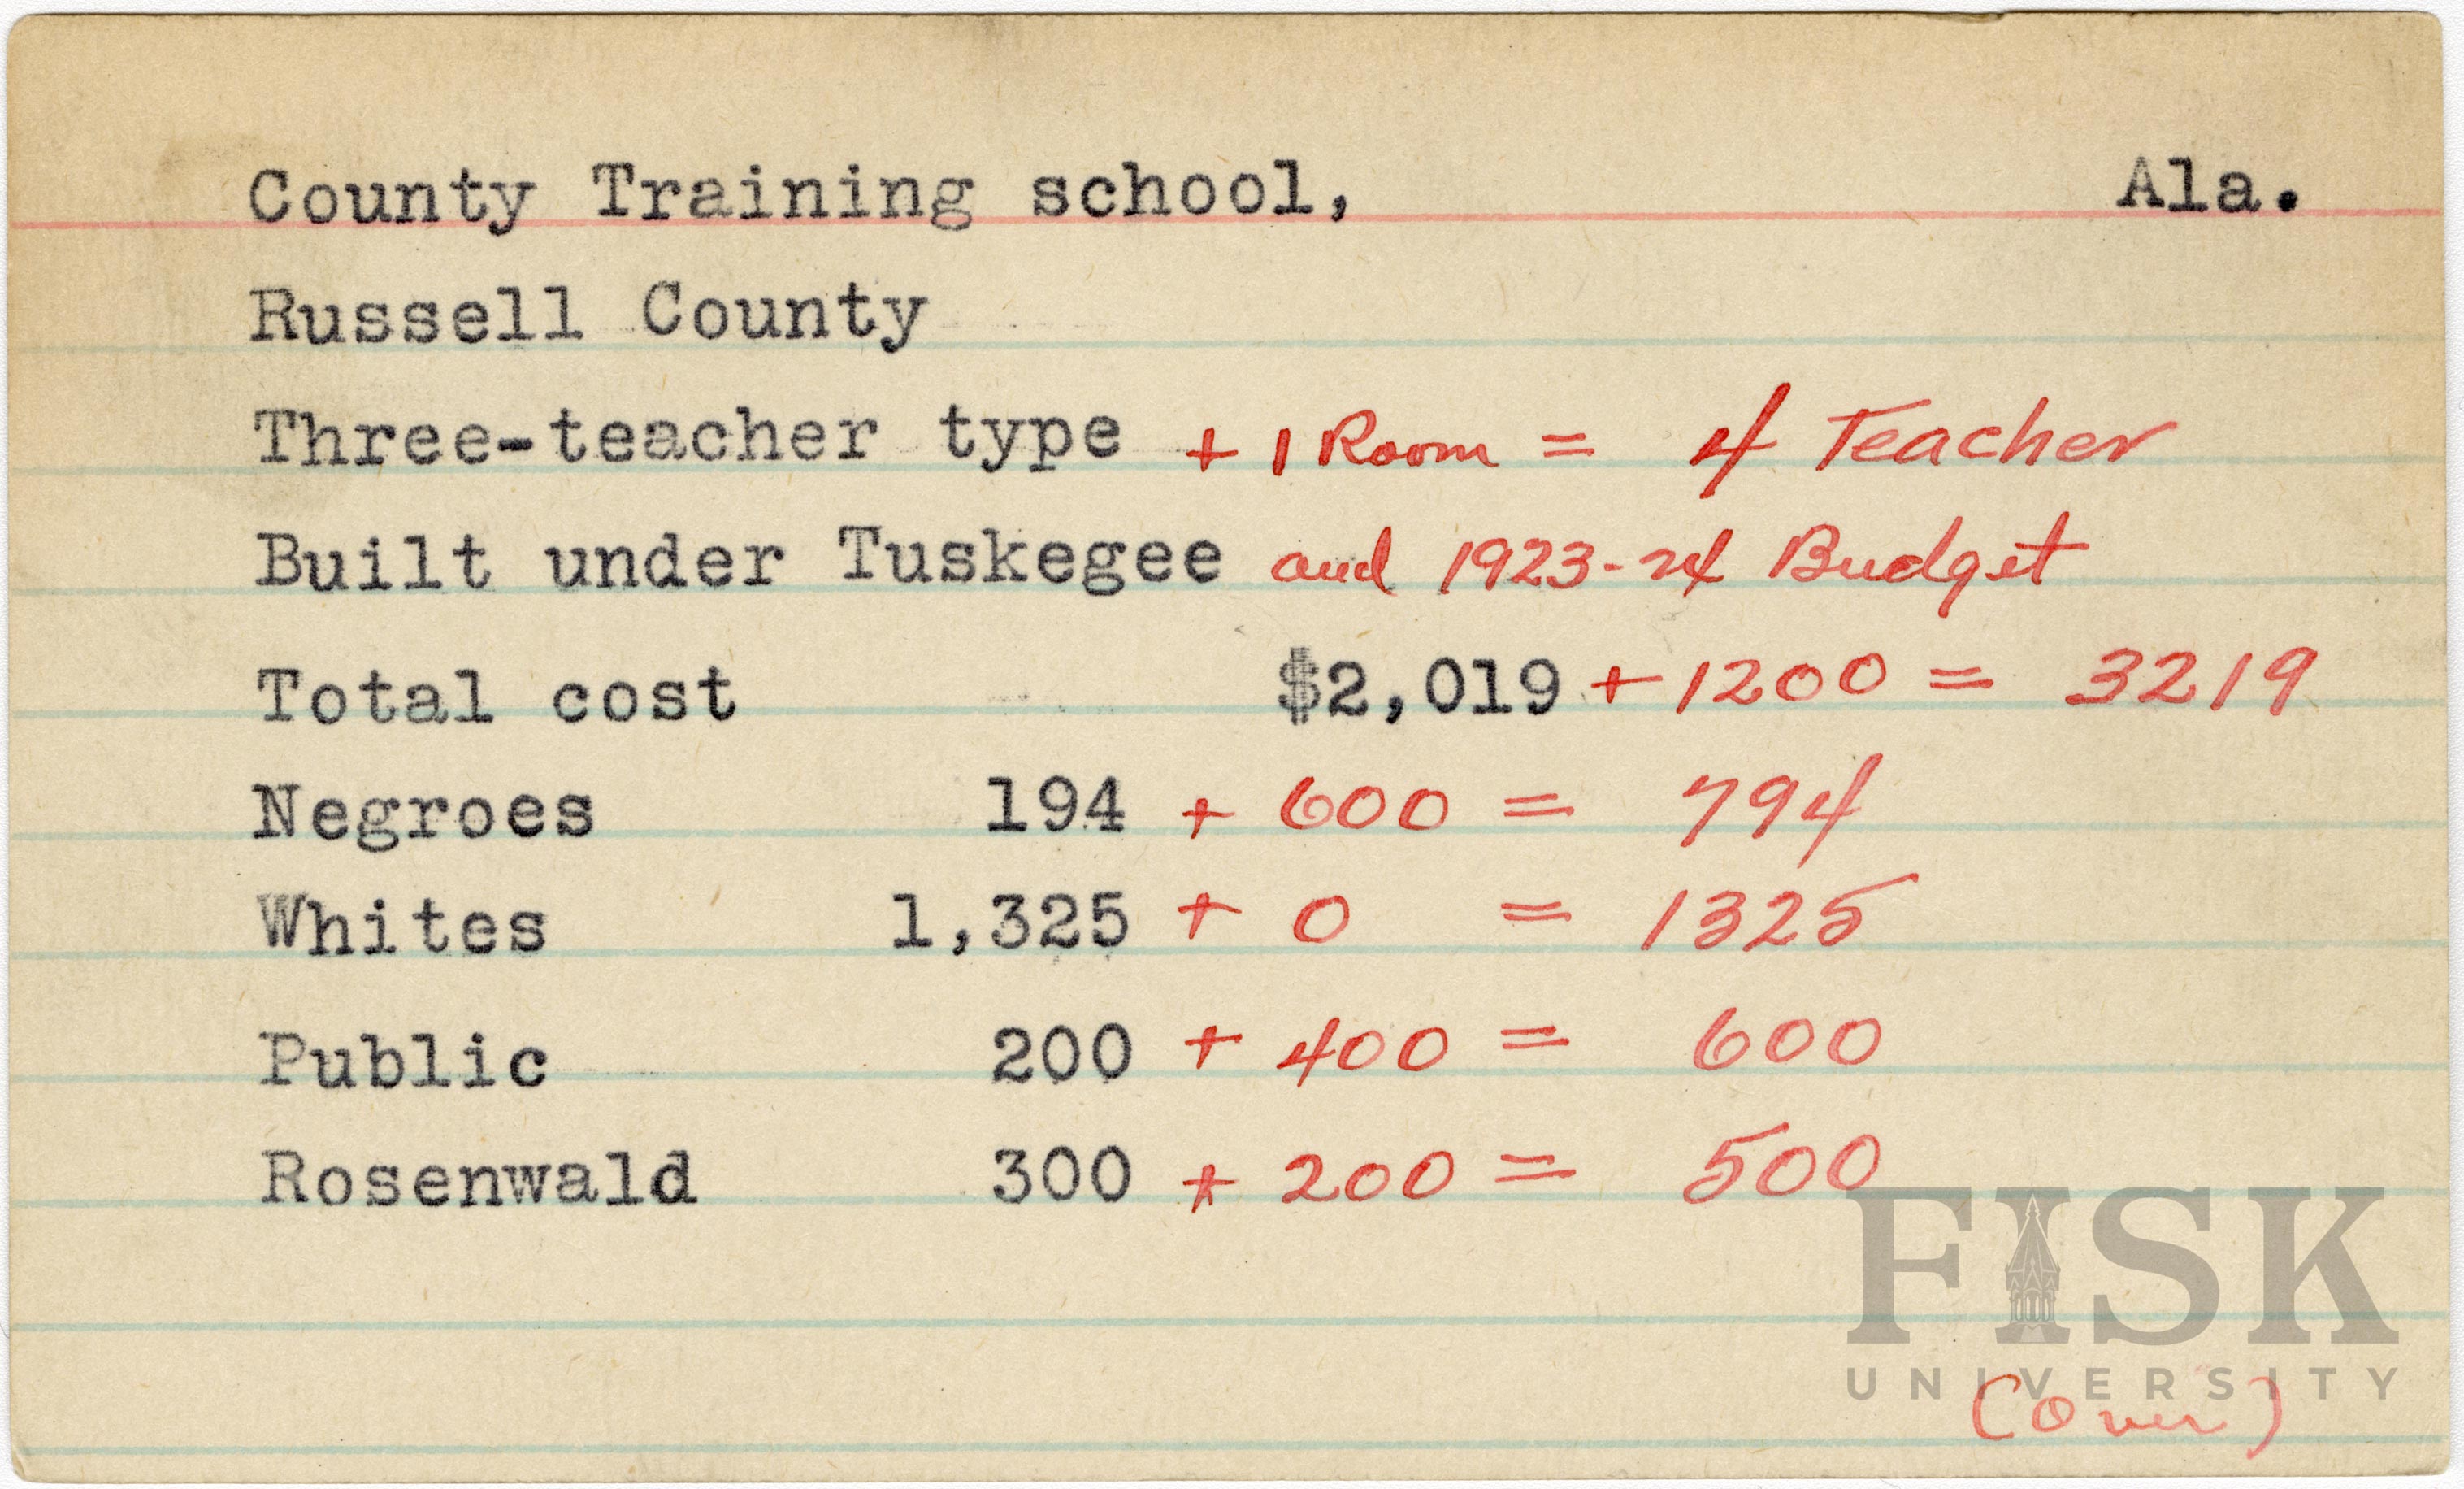 County Training school, Ala.
Russell County
Three-teacher type + 1 Room = 4 Teacher
Built under Tuskegee and 1923-24 Budget
Total cost $2,019 + 1200 = 3219
Negroes 194 + 600 = 794
Whites 1,325 + 0 = 1325
Public 200 + 400 = 600
Rosenwald 300 + 200 = 500
FISK
UNIVERSITY
(Over)